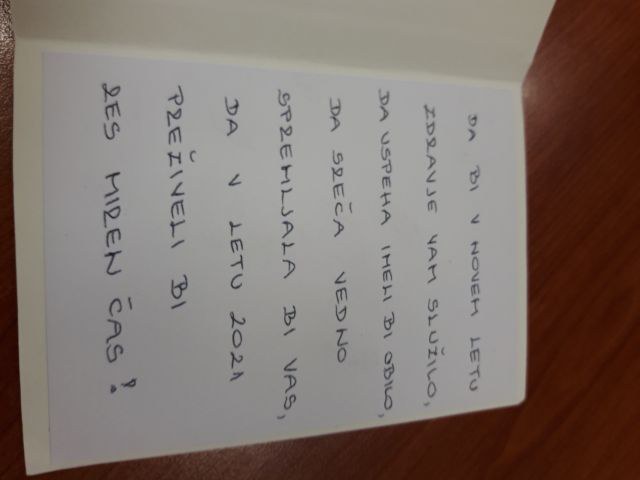 DA BI V NOVEM LETU
ZDRAVJE VAM SLUŽILO,
DA USPEHA IMELI BI OBILO,
DA SREČA VEDNO
SPREMLJALA BI VAS,
DA V LETU 2021
PREŽIVELI BI
RES MIREN ČAS!